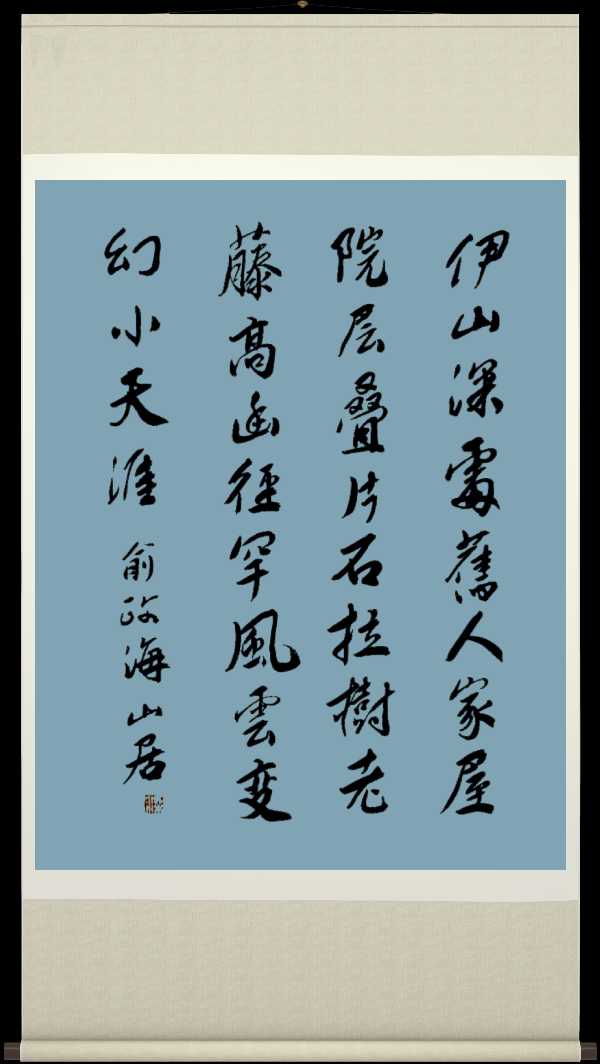 伊山深處舊人家屋
院层叠片石拉樹老
藤高幽徑罕風雲变
幻小天涯 俞政海山居